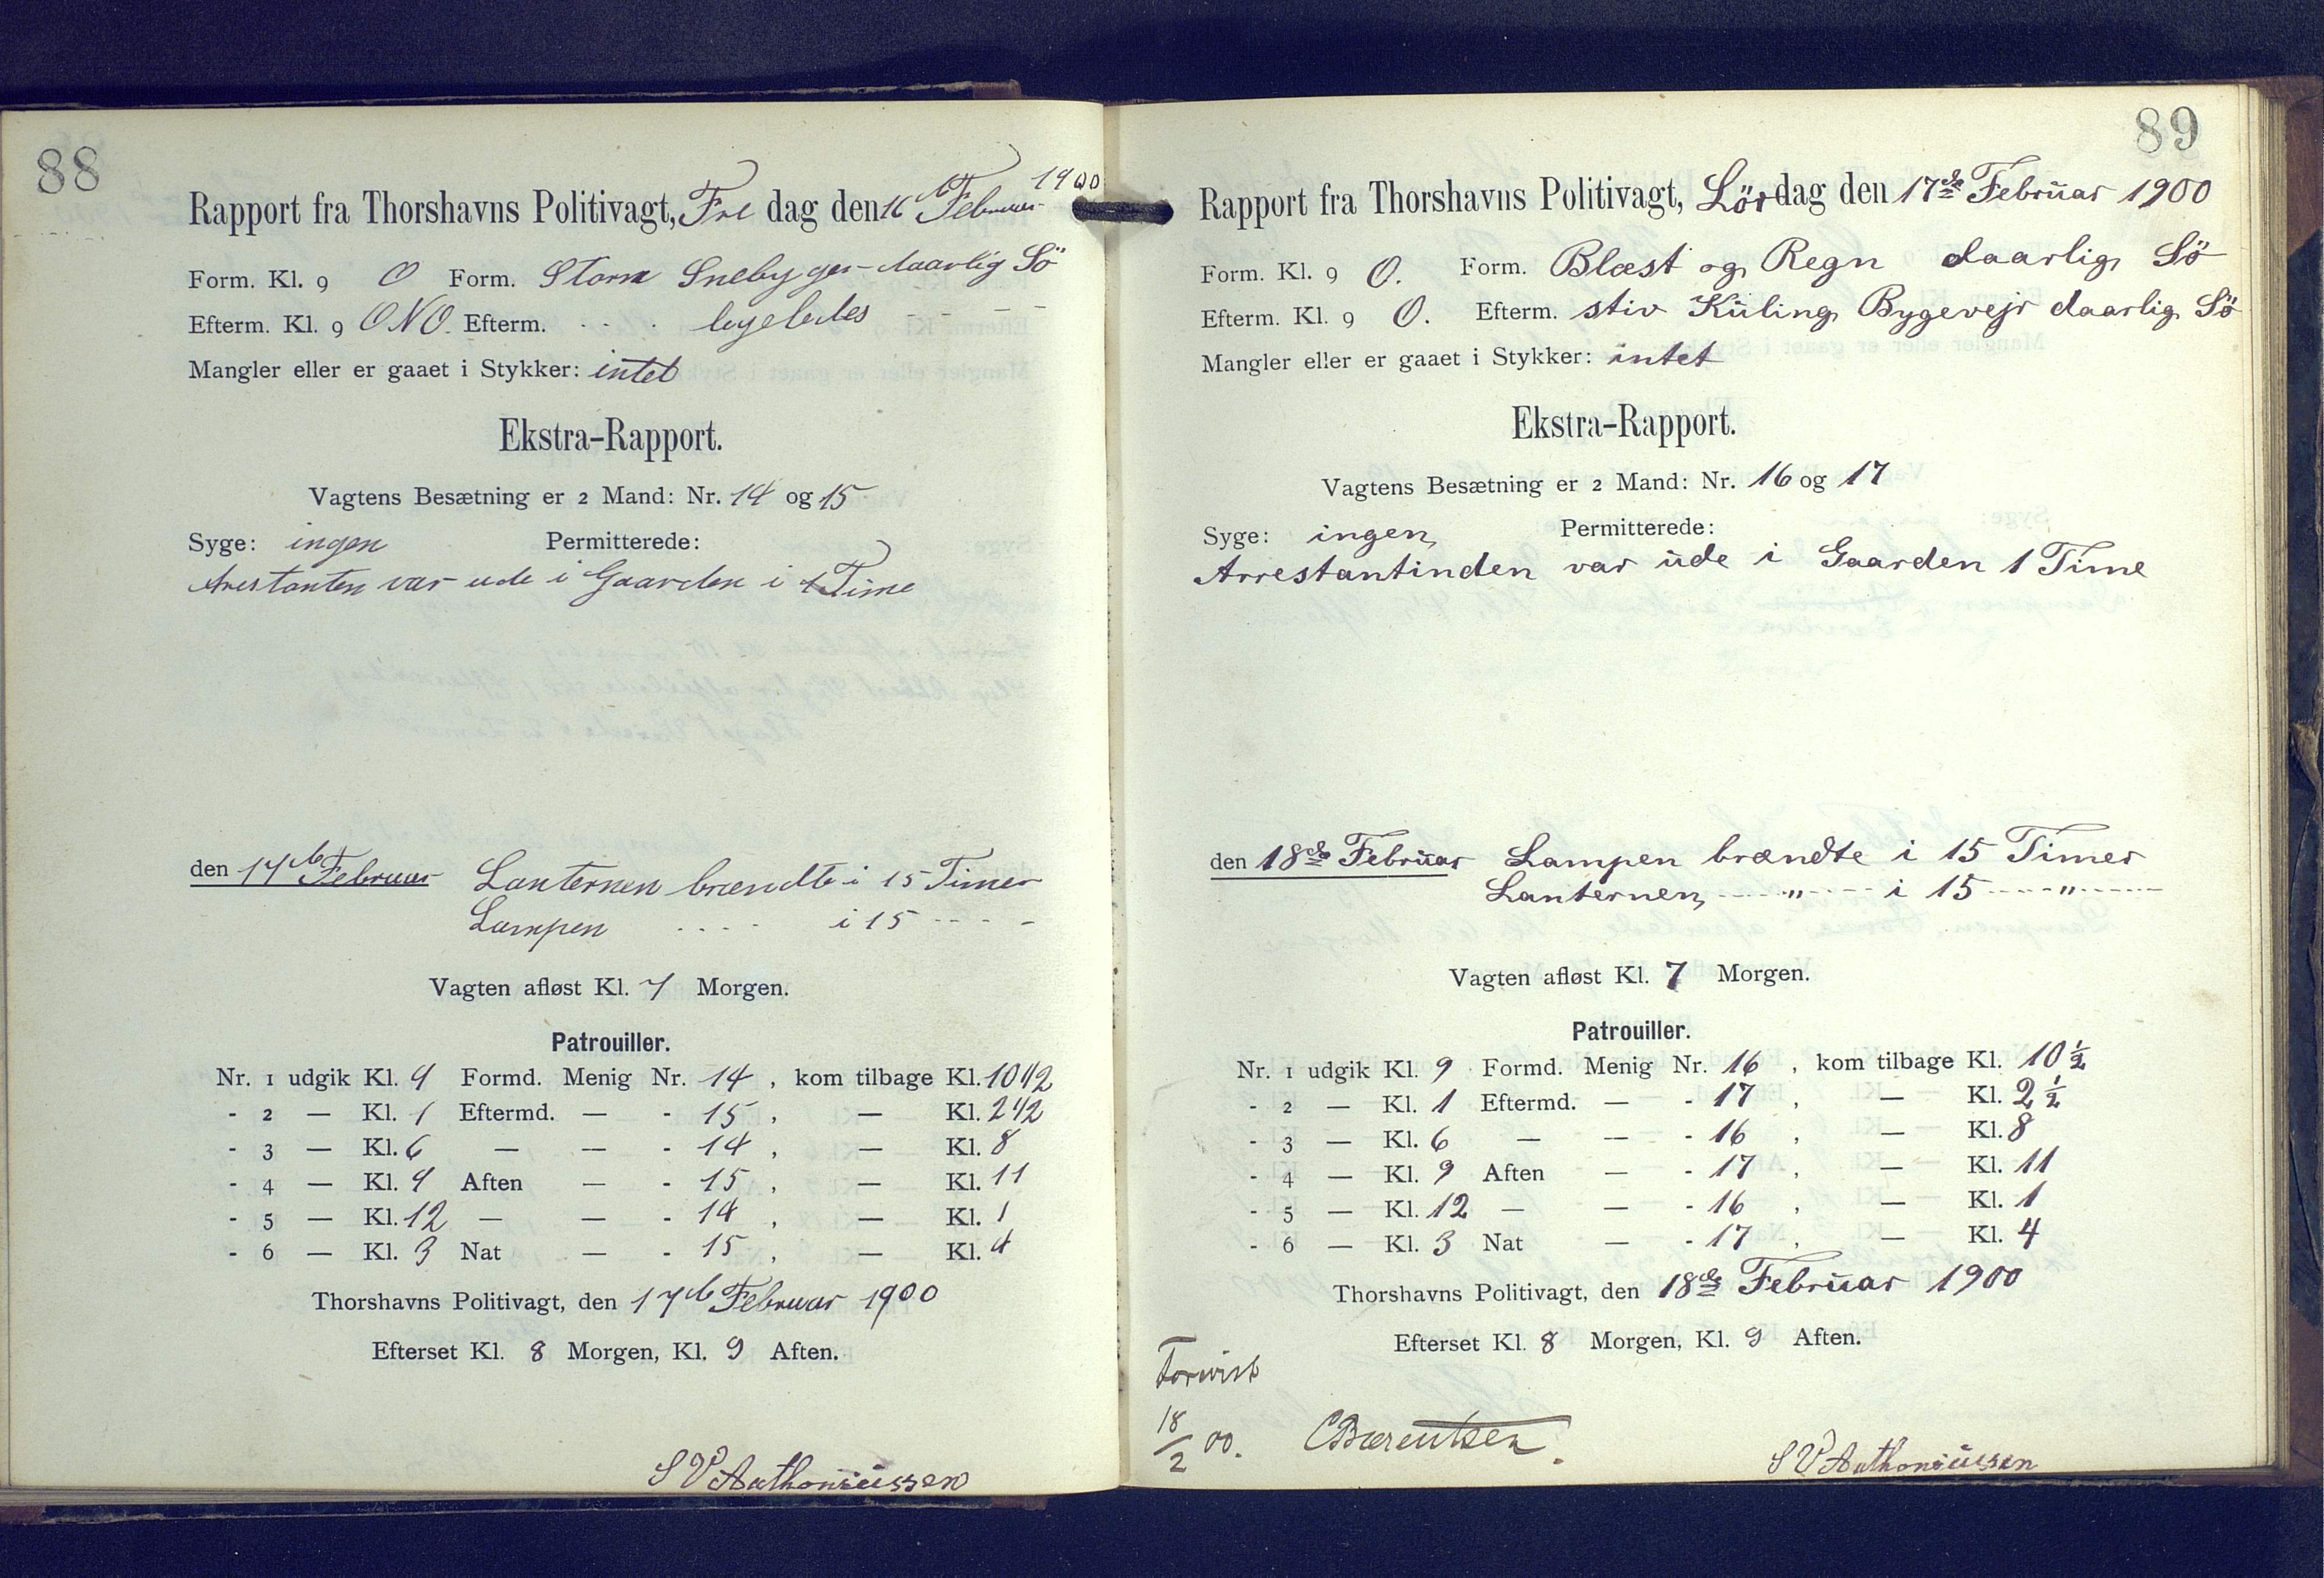 88
Rapport fra Thorshavns Politivagt, Fre dag den 16de Februar 1900
Form. Kl. 9 O Form. Storm Snebyger daarlig Sö
Efterm. Kl. 9 ONO. Efterm. - - - ligeledes - - - -
Mangler eller er gaaet i Stykker: intet
Ekstra-Rapport.
Vagtens Besætning er 2 Mand: Nr. 14 og 15
Syge: ingen Permitterede:
Arestanten var ude i Gaarden i 1 Time
den 17de Februar Lanternen brændte i 15 Timer
Lampen - - - - i 15 - - - -
Vagten afløst Kl. 7 Morgen.
Patrouiller.
Nr. 1 udgik Kl. 9 Formd. Menig Nr. 14, kom tilbage Kl. 10 1/2
- 2 — Kl. 1 Eftermd. — - 15, — Kl. 2 1/2
- 3 — Kl. 6 — — - 14, — Kl. 8
- 4 — Kl. 9 Aften — - 15, — Kl. 11
- 5 — Kl. 12 — — - 14, — Kl. 1
- 6 — Kl. 3 Nat — - 15, — Kl. 4
Thorshavns Politivagt, den 17de Februar 1900
Efterset Kl. 8 Morgen, Kl. 9 Aften.
S V Anthoniussen
89
Rapport fra Thorshavns Politivagt, Lördag den 17de Februar 1900
Form. Kl. 9 O. Form. Blæst og Regn daarlig Sö
Efterm. Kl. 9 O. Efterm. stiv Kuling Bygevejr daarlig Sö
Mangler eller er gaaet i Stykker: intet
Ekstra-Rapport.
Vagtens Besætning er 2 Mand: Nr. 16 og 17
Syge: ingen Permitterede:
Arrestantinden var ude i Gaarden 1 Time
den 18de Februar Lampen brændte i 15 Timer
Lanternen ---- " ---- i 15 ---- " ----
Vagten afløst Kl. 7 Morgen.
Patrouiller.
Nr. 1 udgik Kl. 9 Formd. Menig Nr. 16, kom tilbage Kl. 10 1/2
- 2 — Kl. 1 Eftermd. — - 17, — Kl. 2 1/2
- 3 — Kl. 6 — — - 16, — Kl. 8
- 4 — Kl. 9 Aften — - 17, — Kl. 11
- 5 — Kl. 12 — — - 16, — Kl. 1
- 6 — Kl. 3 Nat — - 17, — Kl. 4
Thorshavns Politivagt, den 18de Februar 1900
Efterset Kl. 8 Morgen, Kl. 9 Aften.
Forevist
18/2 00. CBærentsen.
S V Anthoniussen